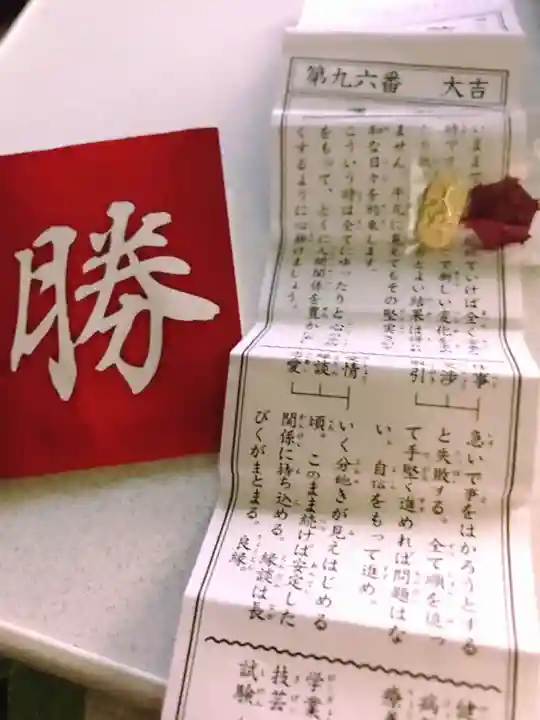 勝
第九六番 大吉
いままで
ていけば全く
時です
て新しい変化を
ません。平凡に見えてもその堅実さ
和な日々を約束します。
こういう時は全てにゆったりと心
をもって、とくに人間関係を豊か
くするように心掛けましょう。
事
渉
引
急いで事をはかろうとする
と失敗する。全て順を追っ
て手堅く進めれば問題はな
い。自信をもって進め。
情
談
愛
いく分飽きが見えはじめる
頃。このまま続けば安定した
関係に持ち込める。縁談は長
びくがまとまる。良縁。
健
病
療
学業
技芸
試験